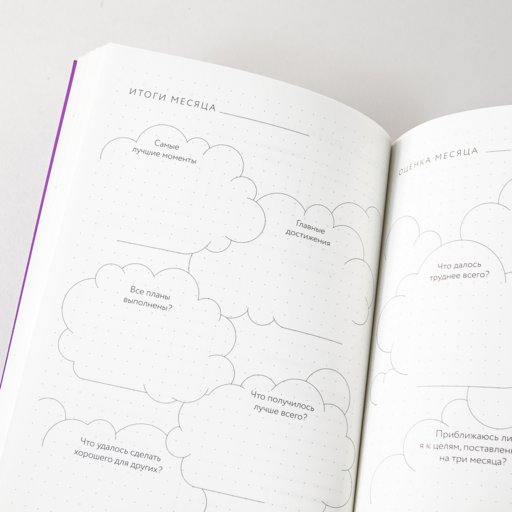 ИТОГИ МЕСЯЦА
Самые
лучшие моменты
Главные
достижения
Все планы
выполнены?
Что получилось
лучше всего?
Что удалось сделать
хорошего для других?
ОЦЕНКА МЕСЯЦА
Что далось
труднее всего?
Приближаюсь ли
я к целям,
на три месяца?